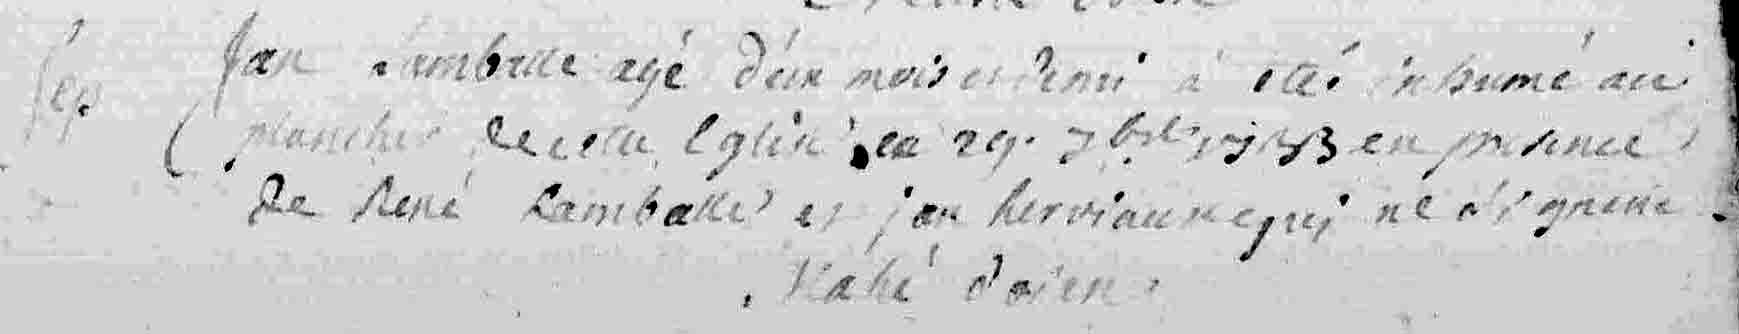 Sep
Jan Lamballe agé d'un mois et demi à eté inhumé au
plancher de cette Eglise, le 29. 7bre 1733 en presence
de René Lamballe et jan herviaux qui ne signent
doien